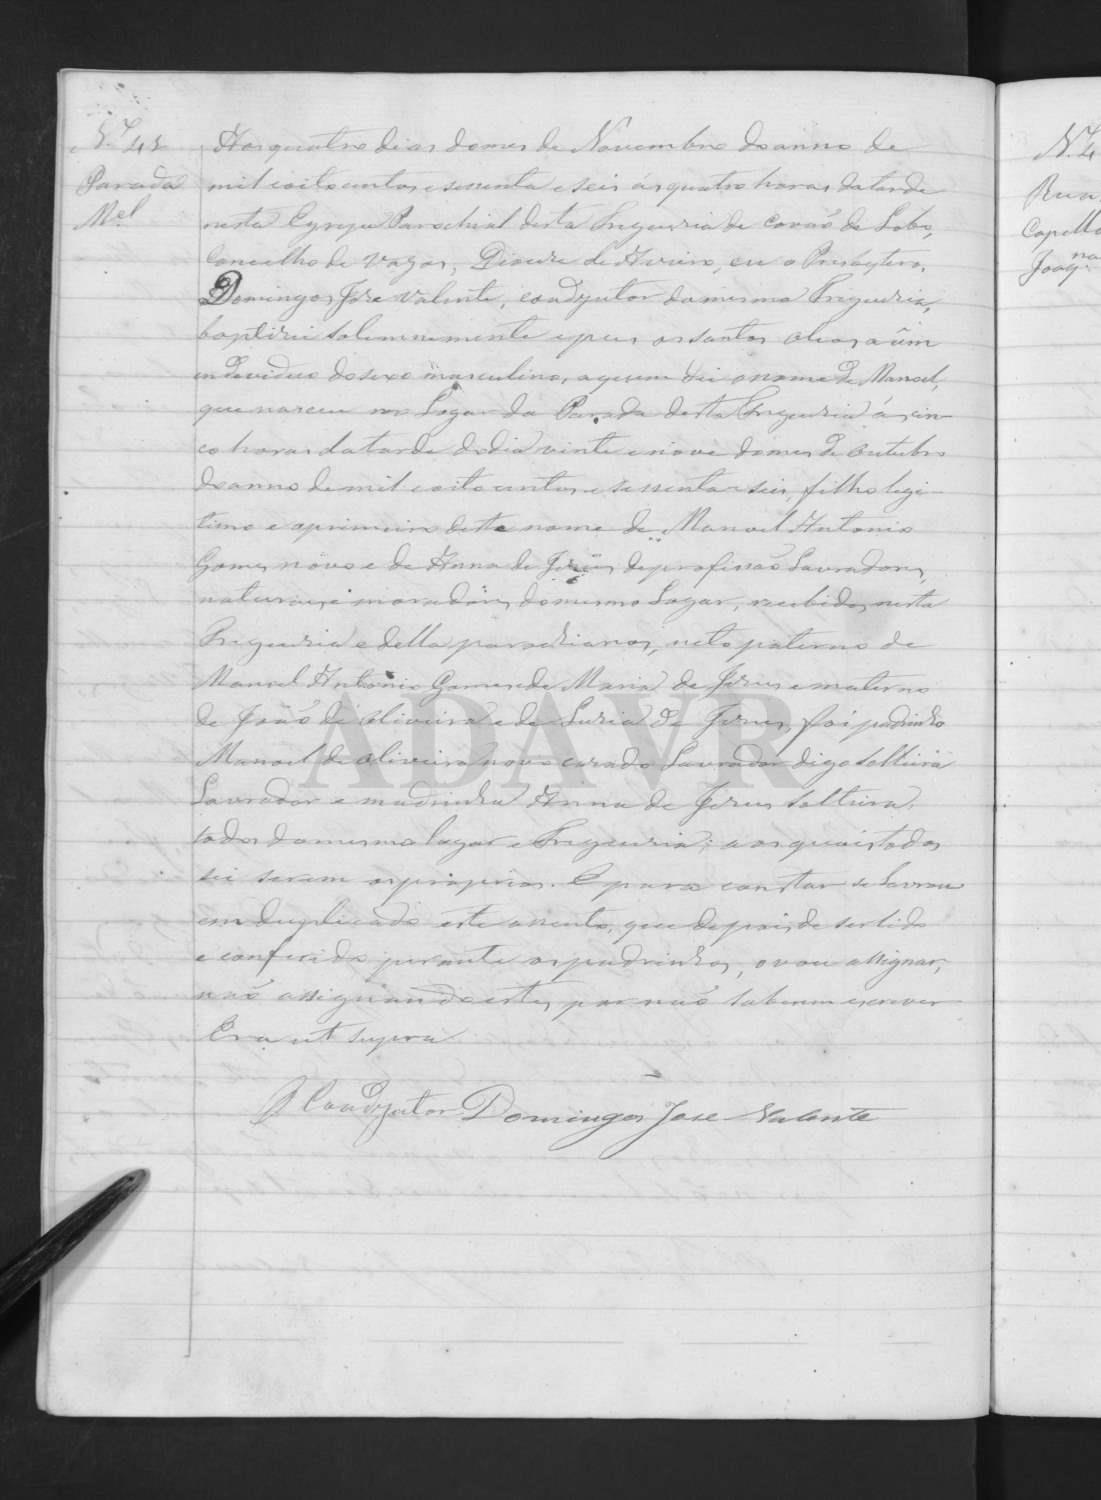 N.º 42
Parada
M.el
Aos quatro dias do mes de Novembro do anno de
mil e oito centos e sessenta e seis ás quatro horas da tarde
nesta Egreja Parochial desta Freguezia de Covaõ de Lobo,
Concelho de Vagos, Diocese de Aveiro, eu o Presbytero
Domingos Jose Valente, coadjutor da mesma Freguezia,
baptizei solemnemente e puz os santos oleos a üm
individuo do sexo masculino, a quem dei o nome de Manoel,
que nasceu no Logar da Parada desta Freguezia ás cin-
co horas da tarde do dia vinte e nove do mes de Outubro
do anno de mil e oito centos e sessenta e seis, filho legi-
timo e o primeiro deste nome de Manoel Antonio
Gomes novo e de Anna de Jesus, de profissaõ Lavradores,
naturaes e moradores do mesmo Logar, recebidos nesta
Freguezia e della parochianos, neto paterno de
Manoel Antonio Gomes e de Maria de Jesus e materno
de Joaõ de Oliveira e de Luzia de Jesus, foi padrinho
Manoel de Oliveira novo casado Lavrador digo solteiro
Lavrador e madrinha Anna de Jesus solteira,
todos do mesmo lugar e Freguezia; a os quais todos
sei serem os proprios. E para constar se lavrou
em duplicado este assento, que depois de ser lido
e conferido perante os padrinhos, o vou assignar,
naõ assignando estes por naõ saberem escrever
Era ut supra
O Coadjutor Domingos Jose Valente
ADAVR
N. 4
Capella
Joaq.